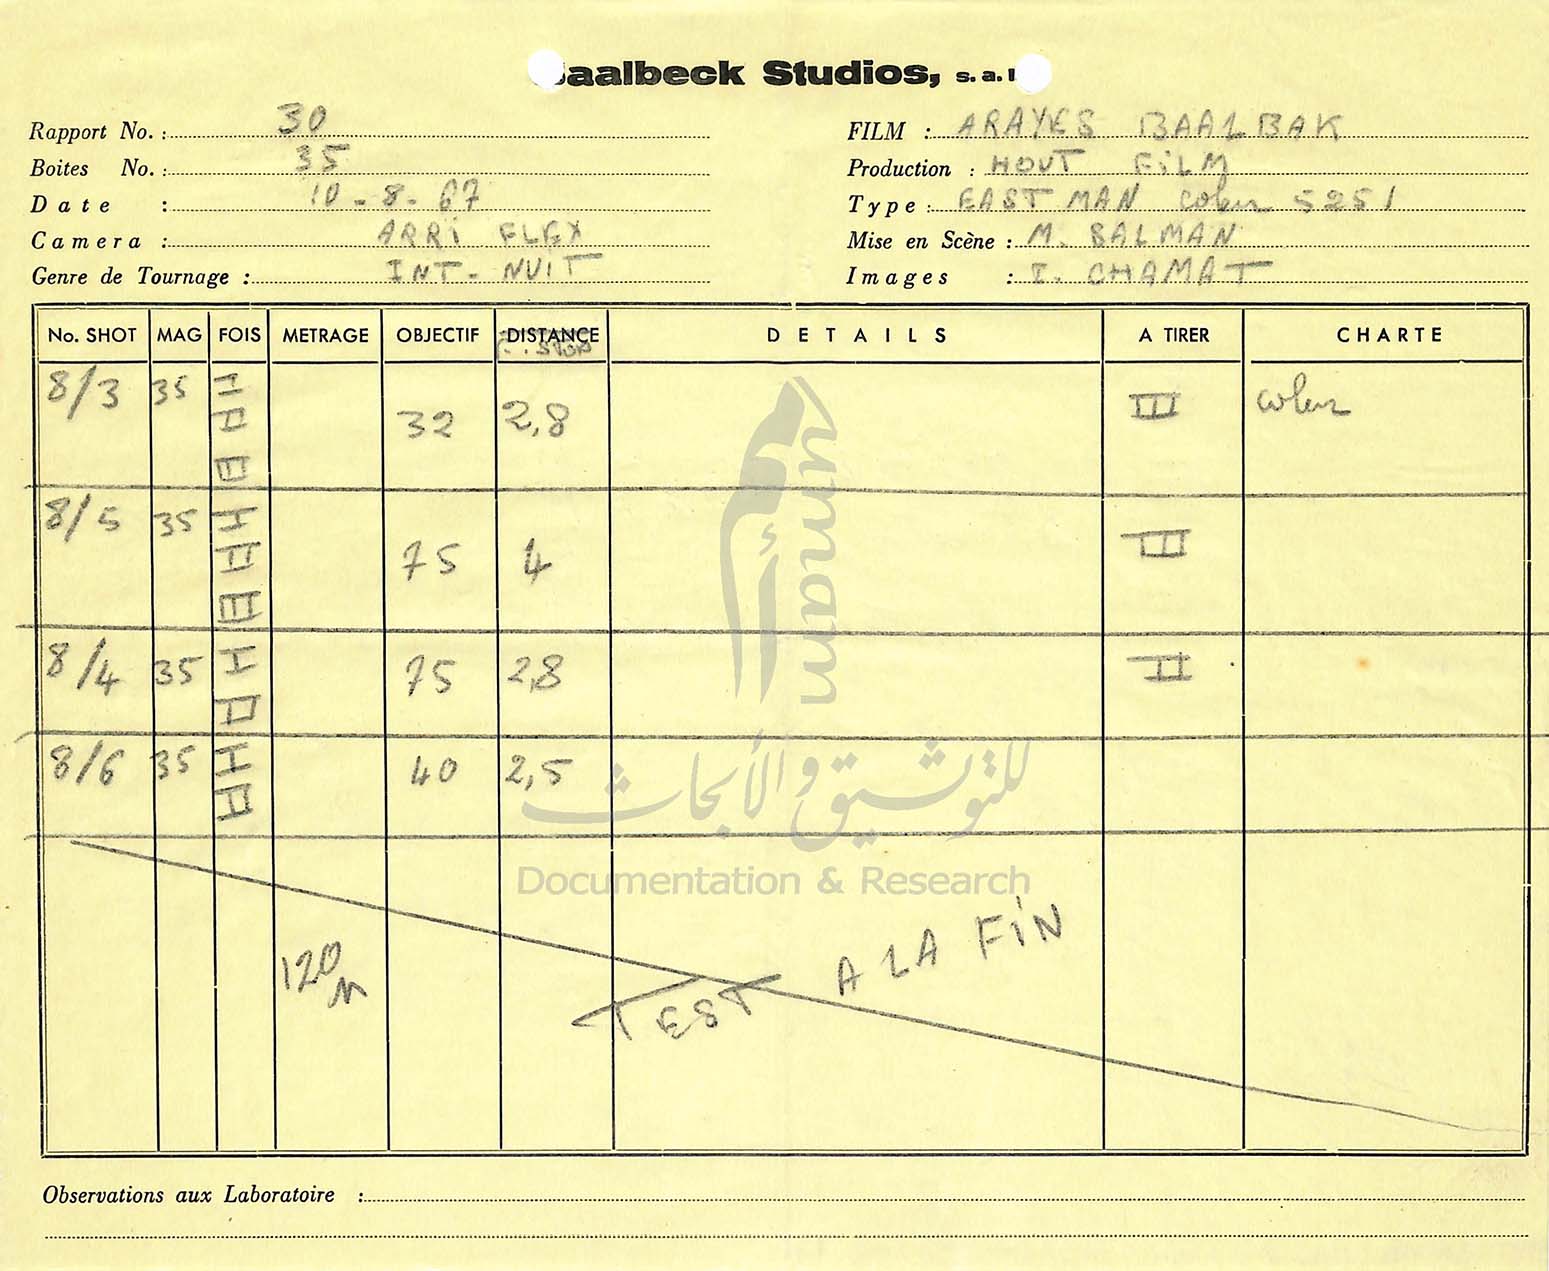 aalbeck Studios, s.a.
Rapport No. : 30
FILM : ARAYES BAALBAK
Boites No. : 35
Production : HOUT FILM
Date : 10-8-67
Type : EAST MAN color 5251
Camera : ARRI FLEX
Mise en Scène : M. SALMAN
Genre de Tournage : INT- NUIT
Images : I. CHAMAT
No. SHOT MAG FOIS METRAGE OBJECTIF DISTANCE DETAILS A TIRER CHARTE
8/3 35 I II III 32 2,8 III color
8/5 35 I II III 75 4 III
8/4 35 I II 75 2,8 II
8/6 35 I II 40 2,5
120 M
TEST A LA FIN
Observations aux Laboratoire :
umam
أمم
للتوثيق والأبحاث
Documentation & Research